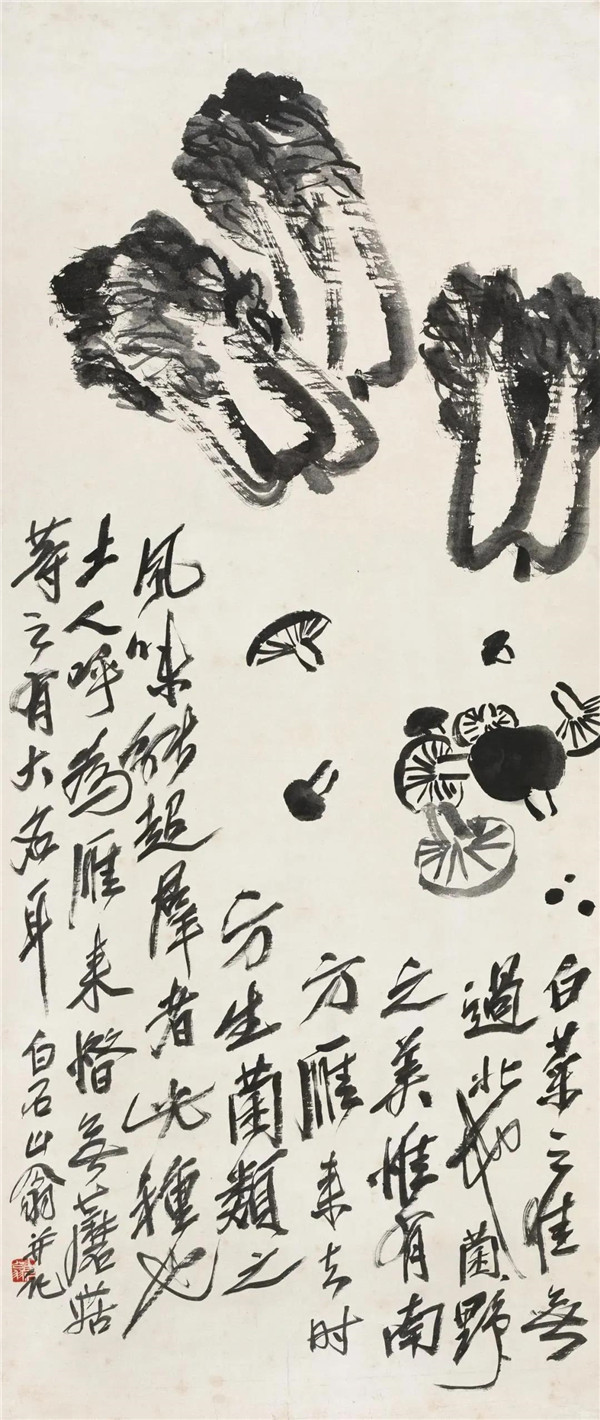 白菜之佳無
過北地菌野
之美惟有南
方雁来去时
方生菌類之
風味能超羣者此種也
土人呼為雁来 無蘑菇
等之有大名耳 白石山翁并记